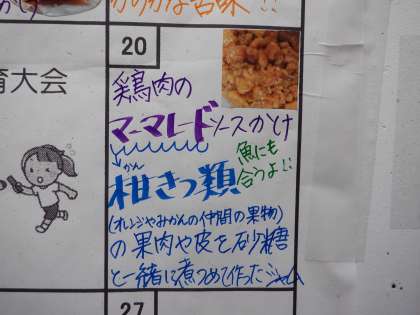 かすかな苦味!!
20
育大会
鶏肉の
マーマレードソースかけ
かん
柑きつ類
魚にも
合うよ!!
(オレンジやみかんの仲間の果物)
の果肉や皮を砂糖
と一緒に煮つめて作ったジャム
27